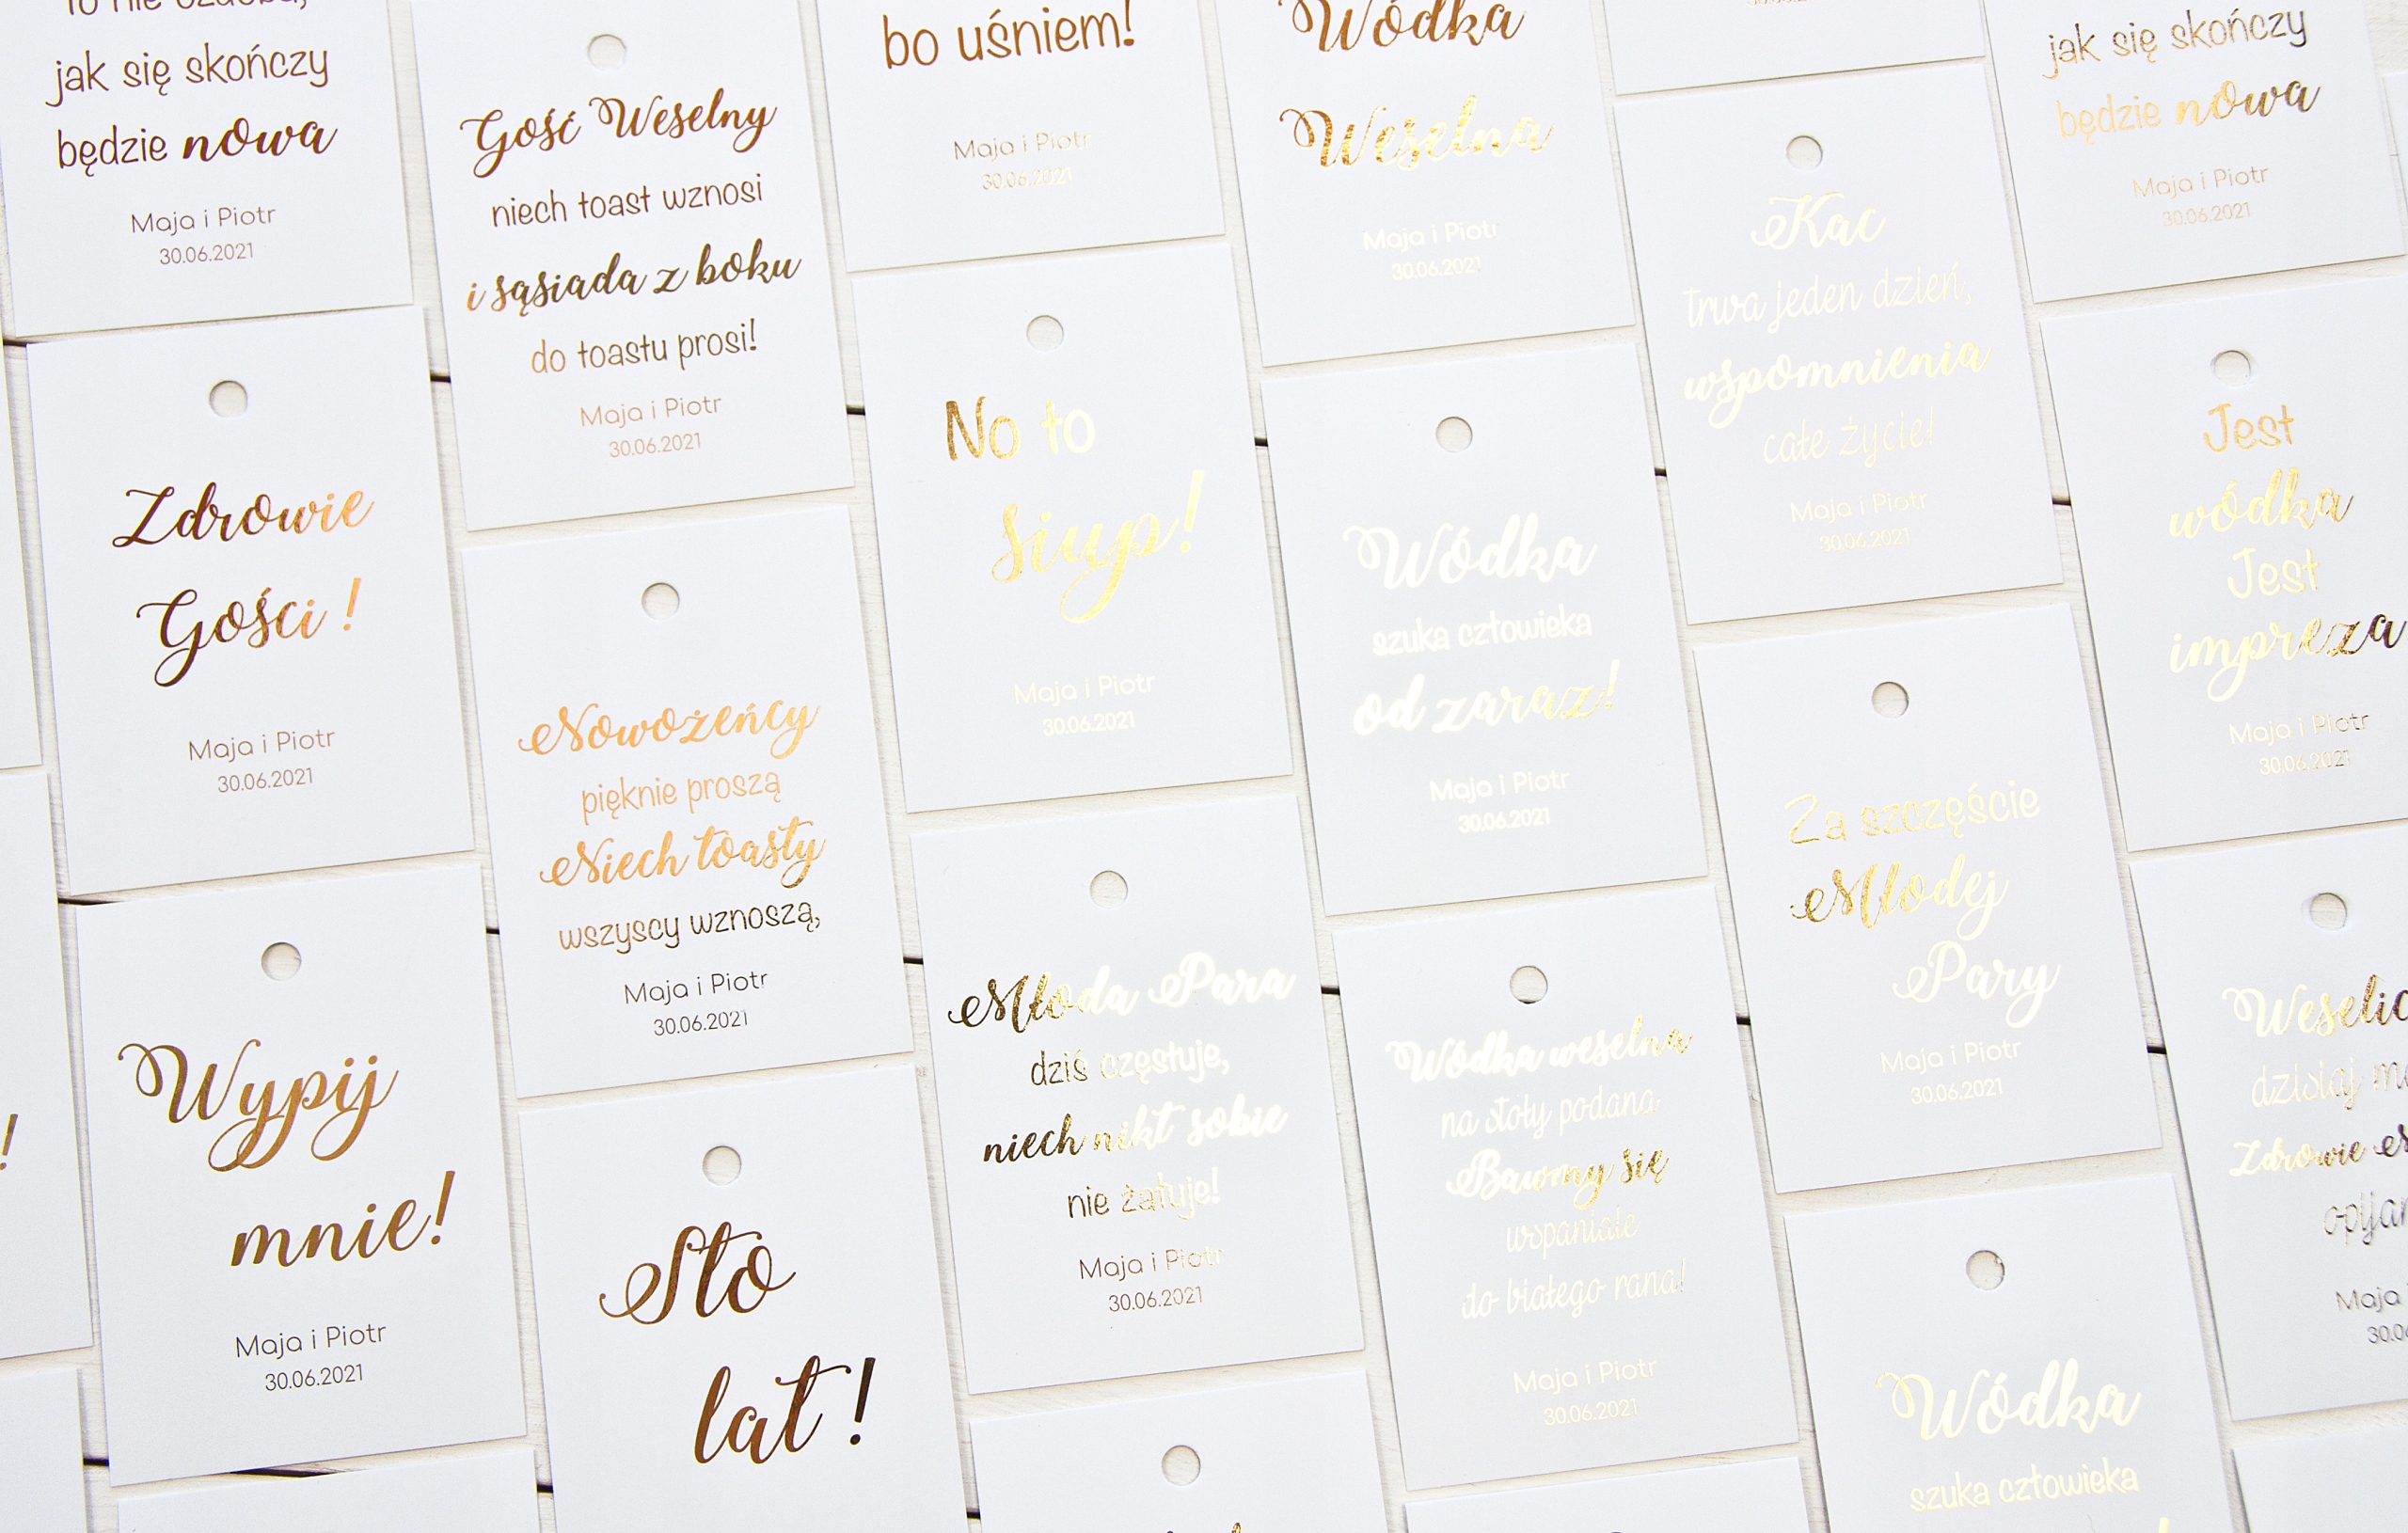 jak się skończy
będzie nowa
Maja i Piotr
30.06.2021
Zdrowie
Gości !
Maja i Piotr
30.06.2021
Wypij
mnie!
Maja i Piotr
30.06.2021
Gość Weselny
niech toast wznosi
i sąsiada z boku
do toastu prosi!
Maja i Piotr
30.06.2021
Nowożeńcy
pięknie proszą
Niech toasty
wszyscy wznoszą,
Maja i Piotr
30.06.2021
Sto
lat !
bo uśniem!
Maja i Piotr
30.06.2021
No to
siup!
Maja i Piotr
30.06.2021
Młoda Para
dziś częstuje,
niech nikt sobie
nie żałuje!
Maja i Piotr
30.06.2021
Wódka
Weselna
Maja i Piotr
30.06.2021
Wódka
szuka człowieka
od zaraz!
Maja i Piotr
30.06.2021
Wódka weselna
na stoły podana
Bawmy się
wspaniale
do białego rana!
Maja i Piotr
30.06.2021
Kac
trwa jeden dzień,
wspomnienia
całe życie!
Maja i Piotr
30.06.2021
Za szczęście
Młodej
Pary
Maja i Piotr
30.06.2021
Wódka
szuka człowieka
jak się skończy
będzie nowa
Maja i Piotr
30.06.2021
Jest
wódka
Jest
impreza
Maja i Piotr
30.06.2021
dzisiaj
Zdrowie
Maja